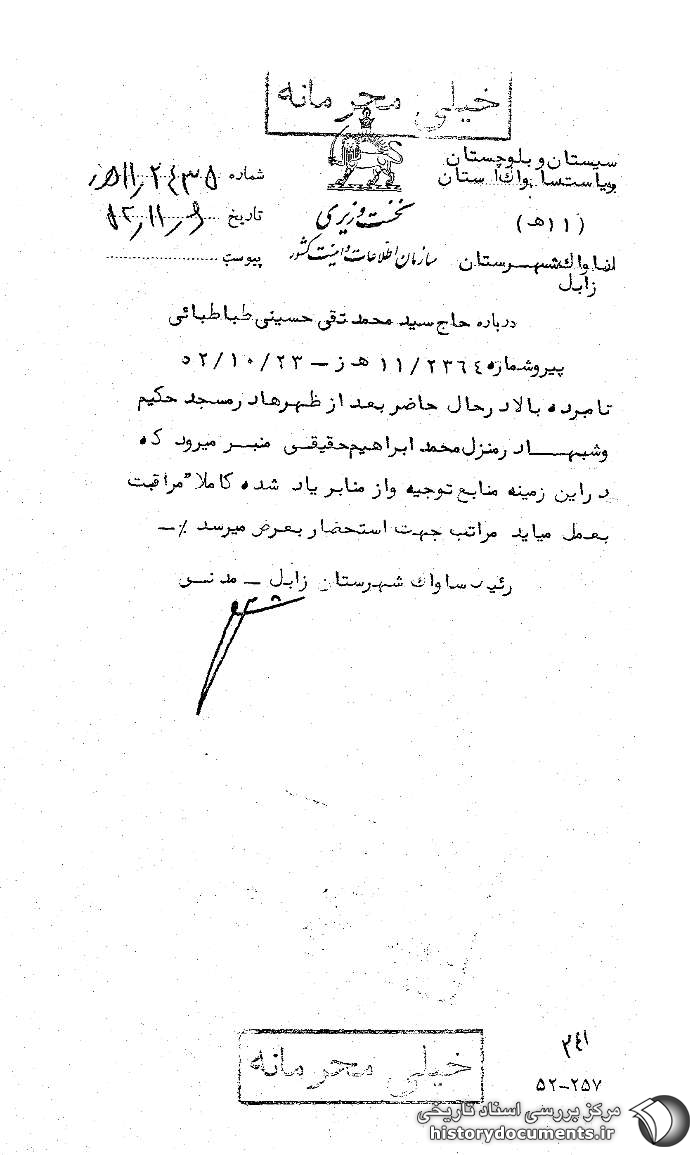 خیلی محرمانه
سیستان و بلوچستان
ریاست ساواک استان
(۱۱ هـ)
از ساواک شهرستان
زابل
نخست وزیری
سازمان اطلاعات و امنیت کشور
شماره ۲۴۳۵/۱۱هـ ز
تاریخ
پیوست
درباره حاج سید محمد تقی حسینی طباطبائی
پیرو شماره ۲۳٦٤/۱۱ هـ ز – ۵۲/۱۰/۲۳
نامبرده بالا در حال حاضر بعد از ظهرها در مسجد حکیم
و شبها در منزل محمد ابراهیم حقیقی منبر میرود که
در این زمینه منابع توجیه و از منابر یاد شده کاملا" مراقبت
بعمل میاید مراتب جهت استحضار بعرض میرسد ./–
رئیس ساواک شهرستان زابل –
۲٤۱
۵۲–۲۵۷
خیلی محرمانه
مرکز بررسی اسناد تاریخی
historydocuments.ir